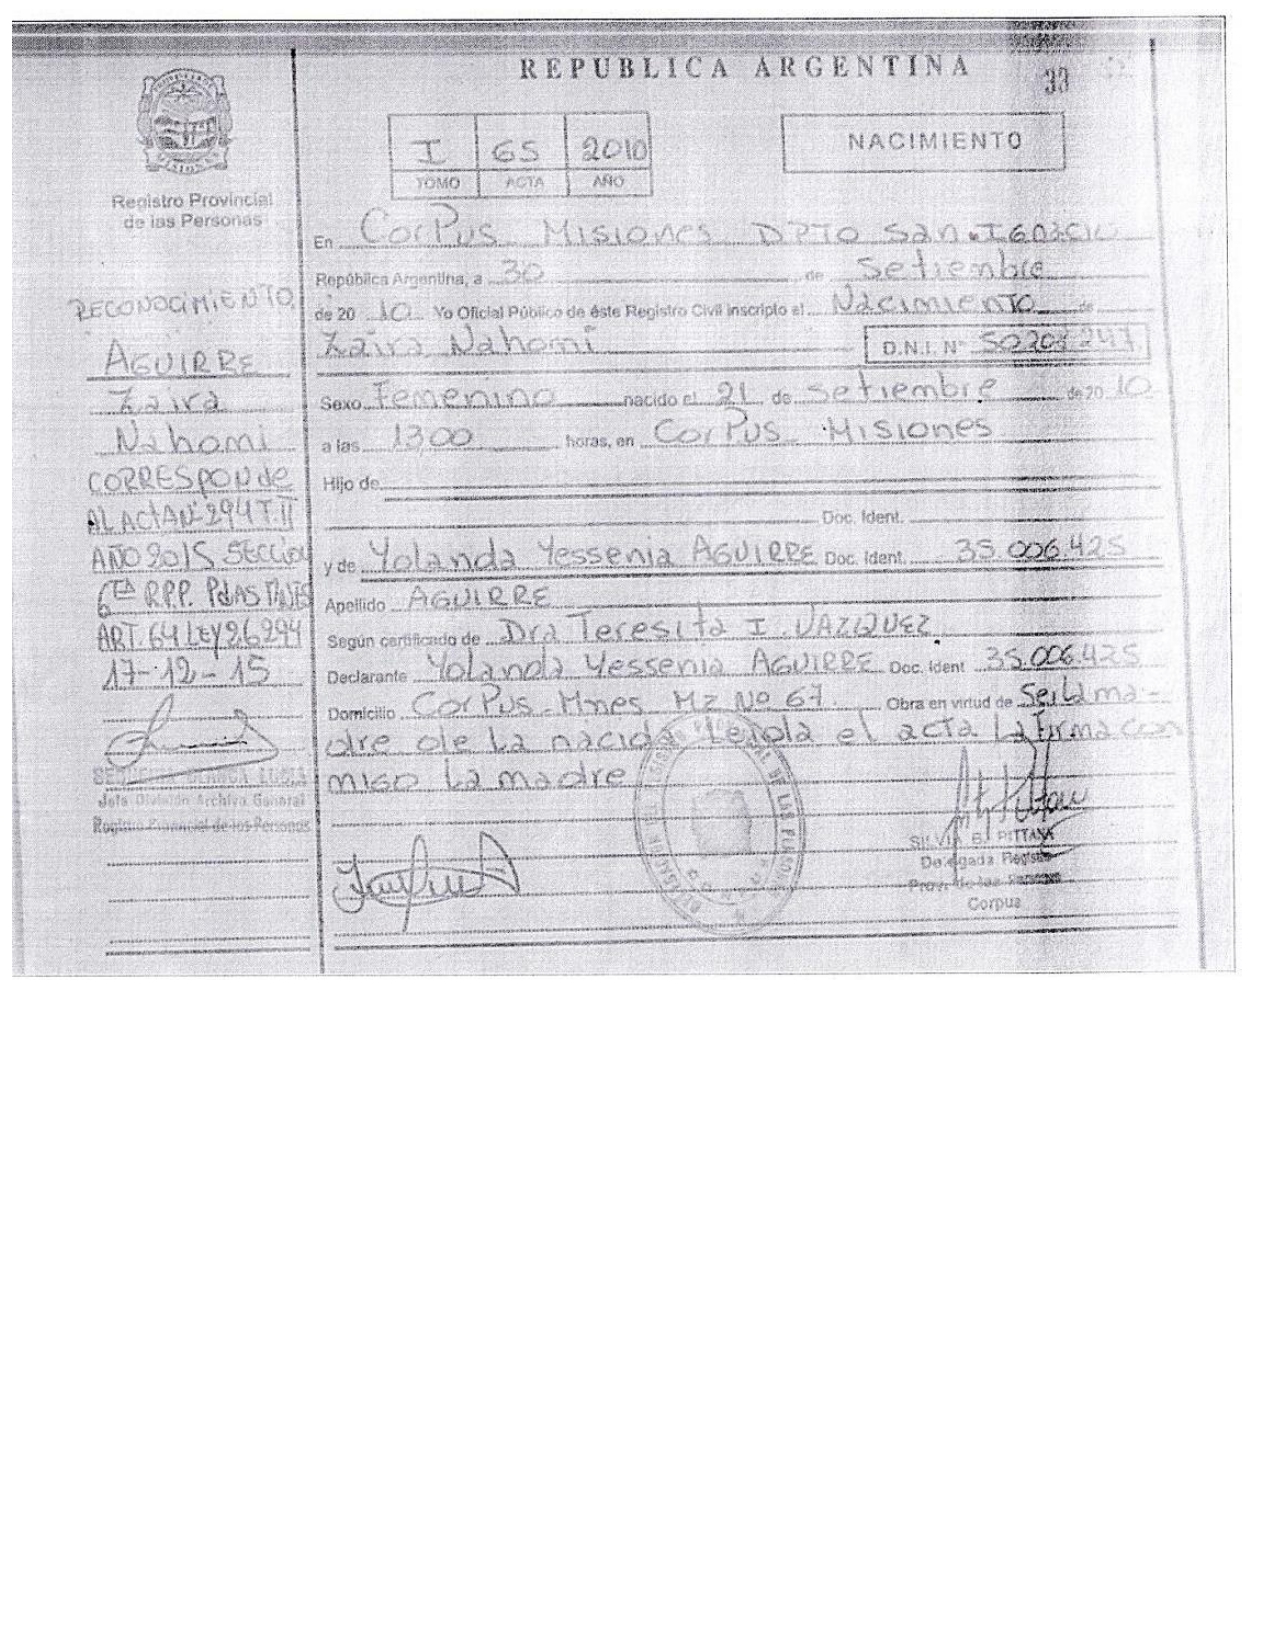 REPUBLICA ARGENTINA
33
I 65 2010
TOMO ACTA AÑO
NACIMIENTO
MISIONES
Registro Provincial
de las Personas
RECONOCIMIENTO
AGUIRRE
Zaira
Nahomi
CORRESponde
AL ACTA Nº 294 T. II
AÑO 2015 SECCION
6TA R.P.P. PdAS MNES
ART. 64 LEY 26.294
17-12-15
BLANCA LUCIA
Jefa División Archivo General
Registro Provincial de las Personas
En Corpus Misiones DPTO San Ignacio
República Argentina, a 30 de Setiembre
de 20 10 Yo Oficial Público de éste Registro Civil inscripto el Nacimiento de
Zaira Nahomi D.N.I. Nº 247
Sexo Femenino nacido el 21 de Setiembre de 20 10
a las 13,00 horas, en Corpus Misiones
Hijo de
Doc. Ident.
y de Yolanda Yessenia AGUIRRE Doc. Ident. 35.006.425
Apellido AGUIRRE
Según certificado de Dra Teresita I VAZQUEZ
Declarante Yolanda Yessenia AGUIRRE Doc. Ident 35.006.425
Domicilio Corpus - Mnes Mz No 67 Obra en virtud de Ser La ma-
dre de La nacida Leida el acta La firma con
migo La madre
SILVIA B. PITTANA
Delegada Registro
Prov. de las Personas
Corpus